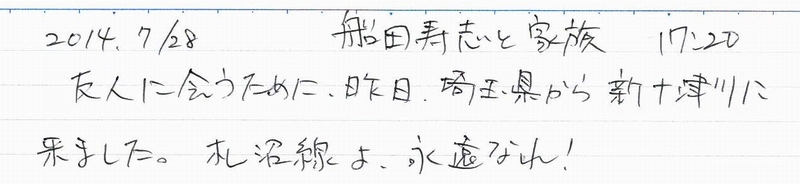 2014. 7/28 船田寿志と家族 17:20
友人に会うために、昨日、埼玉県から新十津川に
来ました。札沼線よ、永遠なれ!